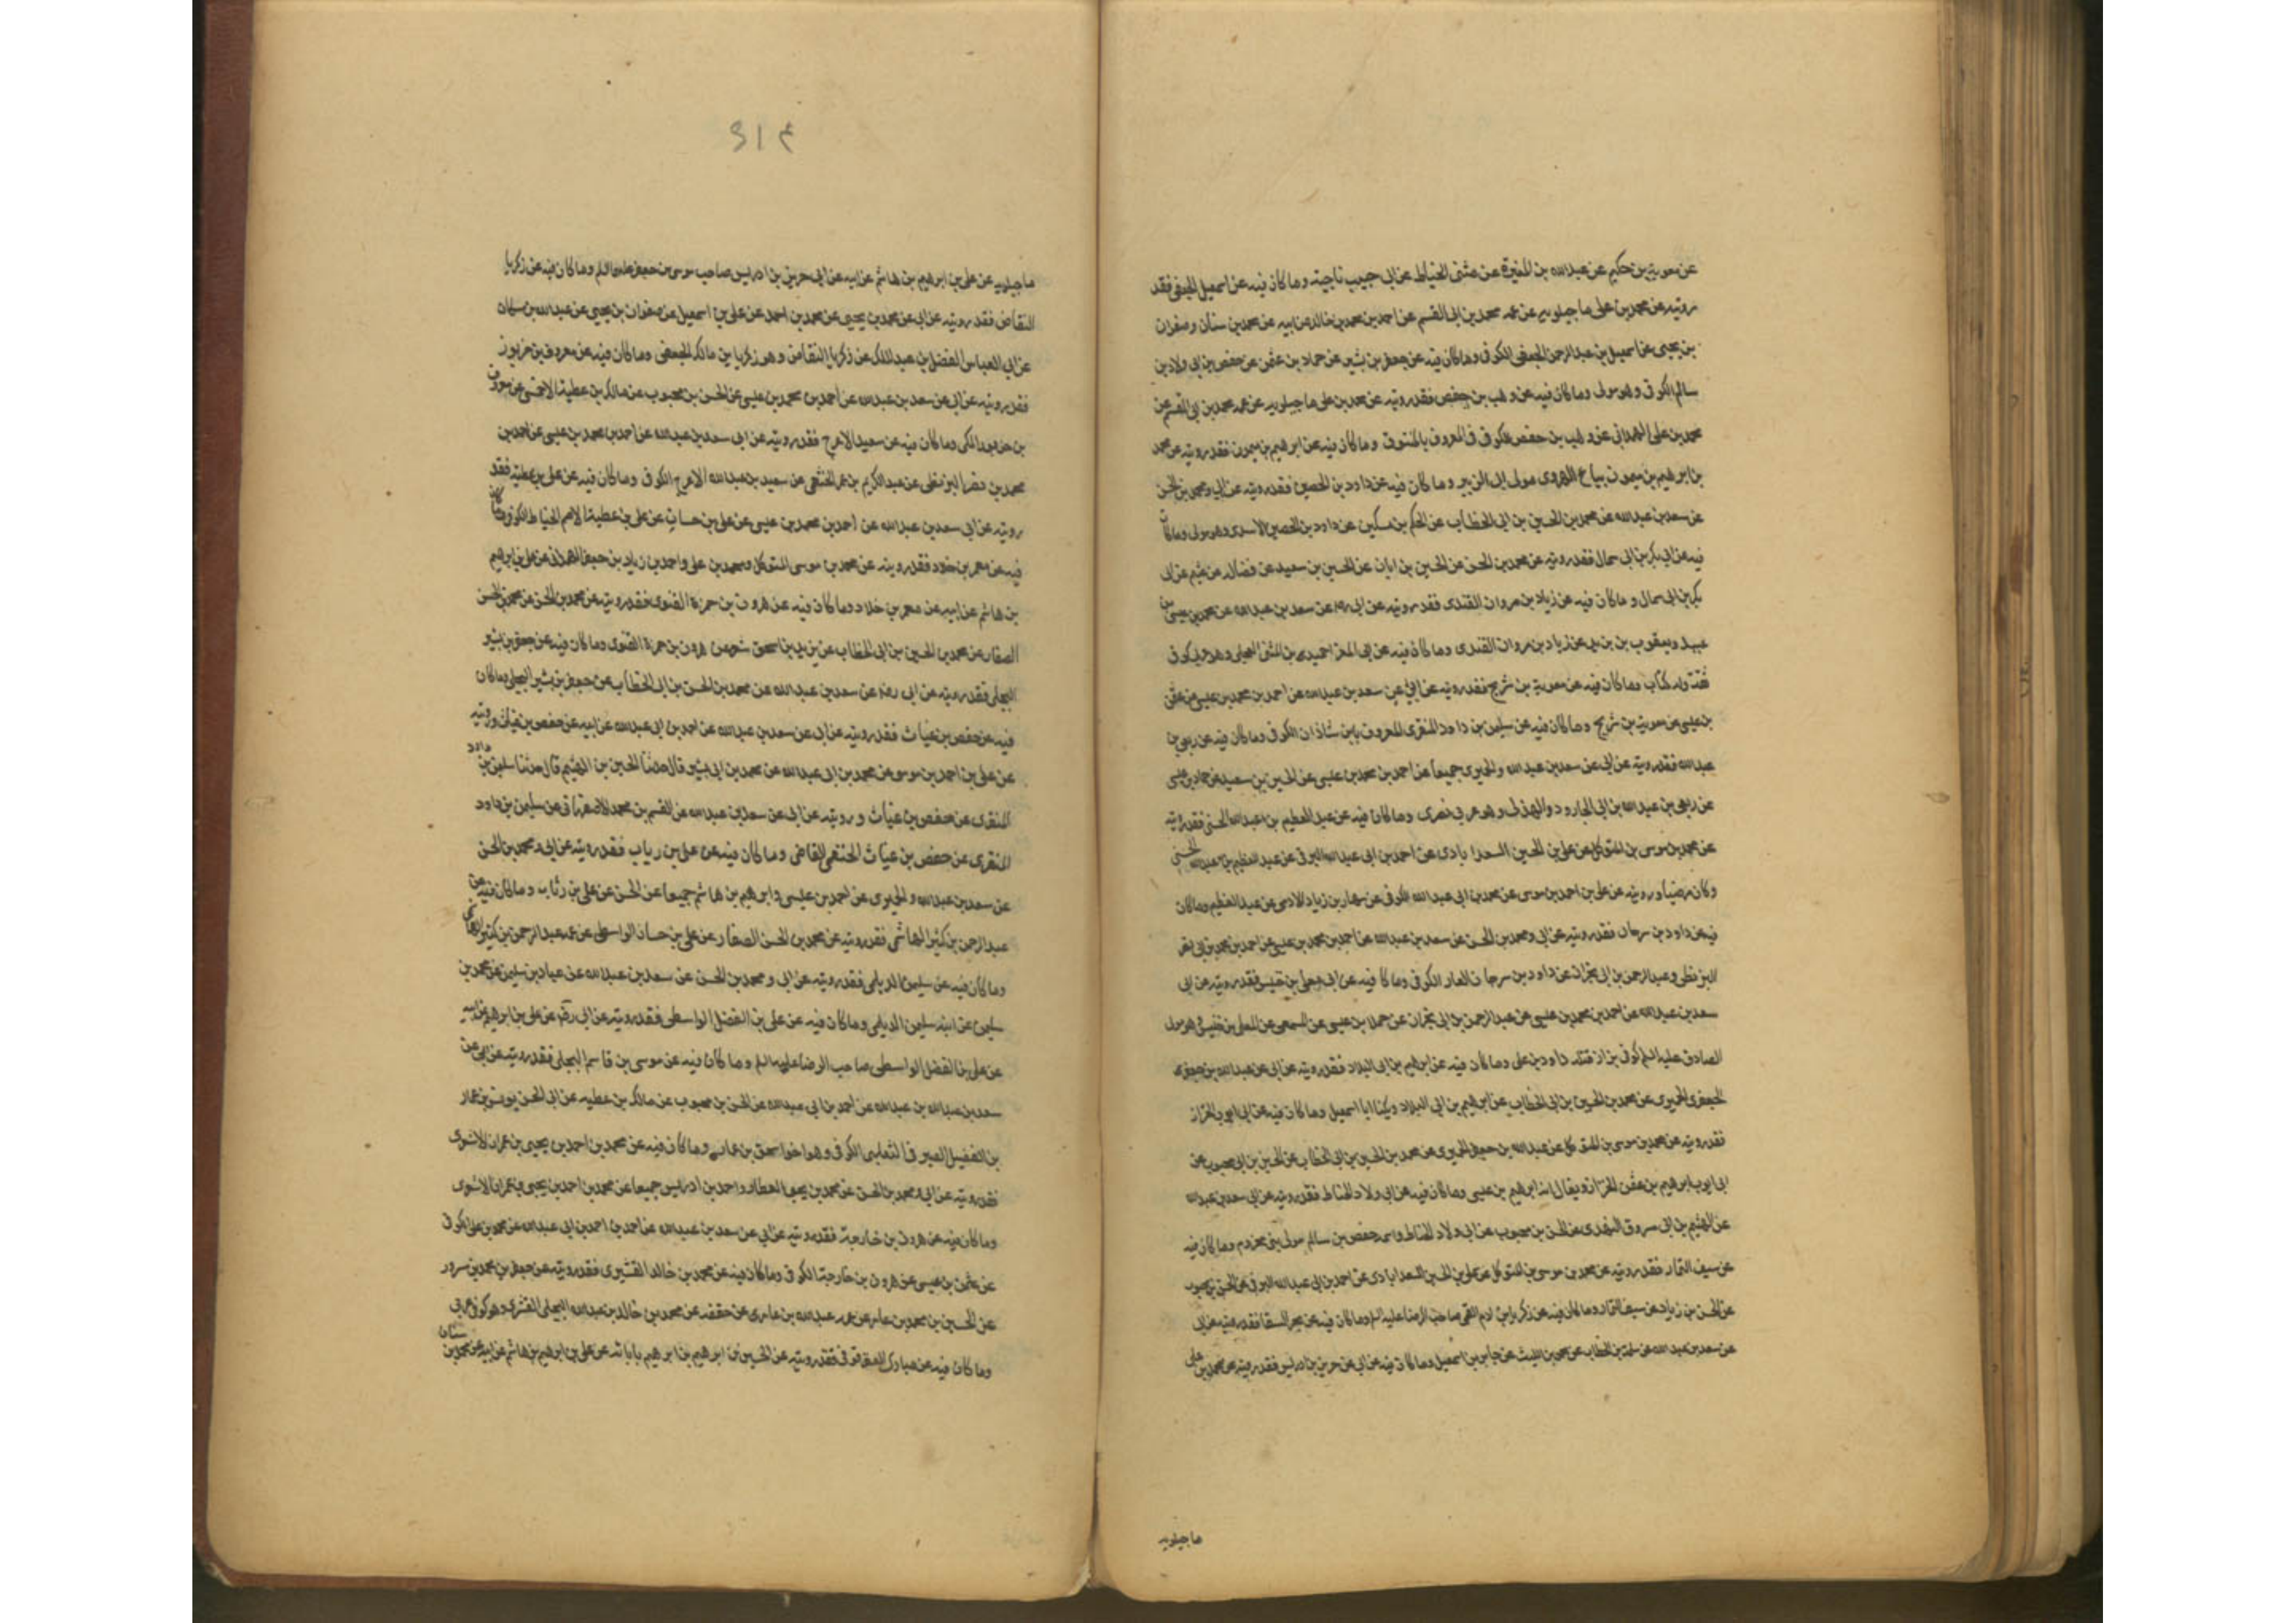 عن معوية بن حكيم عن عبدالله بن المغيرة عن مثنى الحناط عن ابى حبيب ناجية وما كان فيه عن اسمعيل الجعفى فقد
رويته عن محمد بن على ماجيلويه عن عمه محمد بن ابى القسم عن احمد بن محمد بن خالد عن ابيه عن محمد بن سنان وصفوان
بن يحيى عن اسمعيل بن عبدالرحمن الجعفى الكوفى وما كان فيه عن جعفر بن بشير عن حماد بن عثمن عن حفص بن ابى ولاد بن
سالم الكوفى وهو مولى وما كان فيه عن وهب بن حفص فقد رويته عن محمد بن على ماجيلويه عن عمه محمد بن ابى القسم عن
محمد بن على الهمدانى عن وهيب بن حفص الكوفى المعروف بالمنتوف وما كان فيه عن ابرهيم بن ميمون فقد رويته عن محمد
بن ابرهيم بن ميمون بياع الهروى مولى ال الزبير وما كان فيه عن داود بن الحصين فقد رويته عن ابى ومحمد بن الحسن
عن سعد بن عبدالله عن محمد بن الحسين بن ابى الخطاب عن الحكم بن مسكين عن داود بن الحصين الاسدى وهو مولى وما كان
فيه عن ابى بكر بن ابى سمال فقد رويته عن محمد بن الحسن عن الحسين بن ابان عن الحسين بن سعيد عن فضالة عن عثيم عن ابى
بكر بن ابى سمال وما كان فيه عن زياد بن مروان القندى فقد رويته عن ابى ره عن سعد بن عبدالله عن محمد بن عيسى بن
عبيد ويعقوب بن يزيد عن زياد بن مروان القندى وما كان فيه عن ابى المغرا حميد بن المثنى العجلى وهو عربى كوفى
ثقة وله كتاب وما كان فيه عن معوية بن شريح فقد رويته عن ابى عن سعد بن عبدالله عن احمد بن محمد بن عيسى عن عثمن
بن عيسى عن معوية بن شريح وما كان فيه عن سليمن بن داود المنقرى المعروف بابن شاذان الكوفى وما كان فيه عن ربعى بن
عبدالله فقد رويته عن ابى عن سعد بن عبدالله والحميرى جميعا عن احمد بن محمد بن عيسى عن الحسين بن سعيد عن حماد بن عيسى
عن ربعى بن عبدالله بن ابى الجارود الهذلى وهو عربى بصرى وما كان فيه عن عبدالعظيم بن عبدالله الحسنى فقد رويته
عن محمد بن موسى بن المتوكل عن على بن الحسين السعدابادى عن احمد بن ابى عبدالله البرقى عن عبدالعظيم بن عبدالله الحسنى
وكان مرضيا ورويته عن على بن احمد بن موسى عن محمد بن ابى عبدالله الكوفى عن سهل بن زياد الادمى عن عبدالعظيم وما كان
فيه عن داود بن سرحان فقد رويته عن ابى ومحمد بن الحسن عن سعد بن عبدالله عن احمد بن محمد بن عيسى عن احمد بن محمد بن ابى نصر
البزنطى وعبدالرحمن بن ابى نجران عن داود بن سرحان العطار الكوفى وما كان فيه عن معلى بن خنيس فقد رويته عن ابى
سعد بن عبدالله عن احمد بن محمد بن عيسى عن عبدالرحمن بن ابى نجران عن حماد بن عيسى عن المسمعى عن المعلى بن خنيس وهو مولى
الصادق عليه السلم كوفى بزاز قتله داود بن على وما كان فيه عن ابرهيم بن ابى البلاد فقد رويته عن ابى عن عبدالله بن جعفر
الحميرى عن محمد بن الحسين بن ابى الخطاب عن ابرهيم بن ابى البلاد ويكنا ابا اسمعيل وما كان فيه عن ابى ايوب الخزاز
فقد رويته عن محمد بن موسى بن المتوكل عن عبدالله بن جعفر الحميرى عن محمد بن الحسين بن ابى الخطاب عن الحسن بن محبوب عن
ابى ايوب ابرهيم بن عثمن الخزاز ويقال انه ابرهيم بن عيسى وما كان فيه عن ابى ولاد الحناط فقد رويته عن ابى سعد بن عبدالله
عن الهيثم بن ابى مسروق النهدى عن الحسن بن محبوب عن ابى ولاد الحناط واسمه حفص بن سالم مولى بنى مخزوم وما كان فيه
عن سيف التمار فقد رويته عن محمد بن موسى بن المتوكل عن على بن الحسين السعدابادى عن احمد بن ابى عبدالله البرقى عن الحسن بن محبوب
عن الحسن بن زياد عن سيف التمار وما كان فيه عن زكريا بن ادم القمى صاحب الرضا عليه السلم وما كان فيه عن بحر السقا فقد رويته عن ابى
عن سعد بن عبدالله عن سلمة بن الخطاب عن محمد بن الليث عن جابر بن اسمعيل وما كان فيه عن ابى حريز بن ادريس فقد رويته عن محمد بن على
ماجيلويه
ماجيلويه عن على بن ابرهيم بن هاشم عن ابيه عن ابى حريز بن ادريس صاحب موسى بن جعفر عليهما السلم وما كان فيه عن زكريا
النقاض فقد رويته عن ابى عن محمد بن يحيى عن محمد بن احمد عن على بن اسمعيل عن صفوان بن يحيى عن عبدالله بن مسكان
عن ابى العباس الفضل بن عبدالملك عن زكريا النقاض وهو زكريا بن مالك الجعفى وما كان فيه عن معروف بن خربوز
فقد رويته عن ابى عن سعد بن عبدالله عن احمد بن محمد بن عيسى عن الحسن بن محبوب عن مالك بن عطية الاحمسى عن معروف
بن خربوذ المكى وما كان فيه عن سعيد الاعرج فقد رويته عن ابى سعد بن عبدالله عن احمد بن محمد بن عيسى عن احمد بن
محمد بن نصر البزنطى عن عبدالكريم بن عمر الخثعمى عن سعيد بن عبدالله الاعرج الكوفى وما كان فيه عن على بن عطية فقد
رويته عن ابى سعد بن عبدالله عن احمد بن محمد بن عيسى عن على بن حسان عن على بن عطية الاصم الحناط الكوفى وما كان
فيه عن معمر بن خلاد فقد رويته عن محمد بن موسى المتوكل ومحمد بن على واحمد بن زياد بن جعفر الهمدانى عن على بن ابرهيم
بن هاشم عن ابيه عن معمر بن خلاد وما كان فيه عن هرون بن حمزة الغنوى فقد رويته عن محمد بن الحسن عن محمد بن الحسن
الصفار عن محمد بن الحسين بن ابى الخطاب عن يزيد بن اسحق شعر عن هرون بن حمزة الغنوى وما كان فيه عن جعفر بن بشير
البجلى فقد رويته عن ابى رضه عن سعد بن عبدالله عن محمد بن الحسين بن ابى الخطاب عن جعفر بن بشير البجلى وما كان
فيه عن حفص بن غياث فقد رويته عن ابى عن سعد بن عبدالله عن احمد بن ابى عبدالله عن ابيه عن حفص بن غياث ورويته
عن على بن احمد بن موسى عن محمد بن ابى عبدالله عن محمد بن ابى بشير قال حدثنا الحسين بن الهيثم قال حدثنا سليمن بن داود
المنقرى عن حفص بن غياث ورويته عن ابى عن سعد بن عبدالله عن القسم بن محمد الاصفهانى عن سليمن بن داود
المنقرى عن حفص بن غياث النخعى القاضى وما كان فيه عن على بن رياب فقد رويته عن ابى ومحمد بن الحسن
عن سعد بن عبدالله والحميرى عن احمد بن عيسى وابرهيم بن هاشم جميعا عن الحسن عن على بن رئاب وما كان فيه عن
عبدالرحمن بن كثير الهاشمى فقد رويته عن محمد بن الحسن الصفار عن على بن حسان الواسطى عن عمه عبدالرحمن بن كثير الهاشمى
وما كان فيه عن سليمن الديلمى فقد رويته عن ابى ومحمد بن الحسن عن سعد بن عبدالله عن عباد بن سليمن عن محمد بن
سليمن عن ابيه سليمن الديلمى وما كان فيه عن على بن الفضل الواسطى فقد رويته عن ابى عن على بن ابرهيم عن ابيه
عن على بن الفضل الواسطى صاحب الرضا عليه السلم وما كان فيه عن موسى بن قاسم البجلى فقد رويته عن ابى عن
سعد بن عبدالله بن عبدالله عن احمد بن ابى عبدالله عن الحسن بن محبوب عن مالك بن عطيه عن ابى الحسن يونس بن عمار
بن الفضيل الصيرفى التغلبى الكوفى وهو اخو اسحق بن عمار وما كان فيه عن محمد بن احمد بن يحيى بن عمران الاشعرى
فقد رويته عن ابى ومحمد بن الحسن عن محمد بن يحيى العطار واحمد بن ادريس جميعا عن محمد بن احمد بن يحيى بن عمران الاشعرى
وما كان فيه عن هرون بن خارجة فقد رويته عن ابى عن سعد بن عبدالله عن احمد بن ابى عبدالله عن محمد بن على الكوفى
عن عثمن بن عيسى عن هرون بن خارجة الكوفى وما كان فيه عن محمد بن خالد القشيرى فقد رويته عن جعفر بن محمد بن مسرور
عن الحسين بن محمد بن عامر عن عمه عبدالله بن عامر عن حفصة عن محمد بن خالد بن عبدالله البجلى القشرى وهو كوفى عربى
وما كان فيه عن مبارك العقرقوفى فقد رويته عن الحسين بن ابرهيم بن ابرهيم باباته عن على بن ابرهيم بن هاشم عن ابيه عن محمد بن سنان